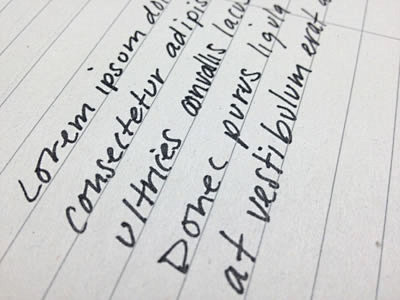 Lorem ipsum
consectetur
ultrices convallis
Donec purus ligula
at vestibulum erat